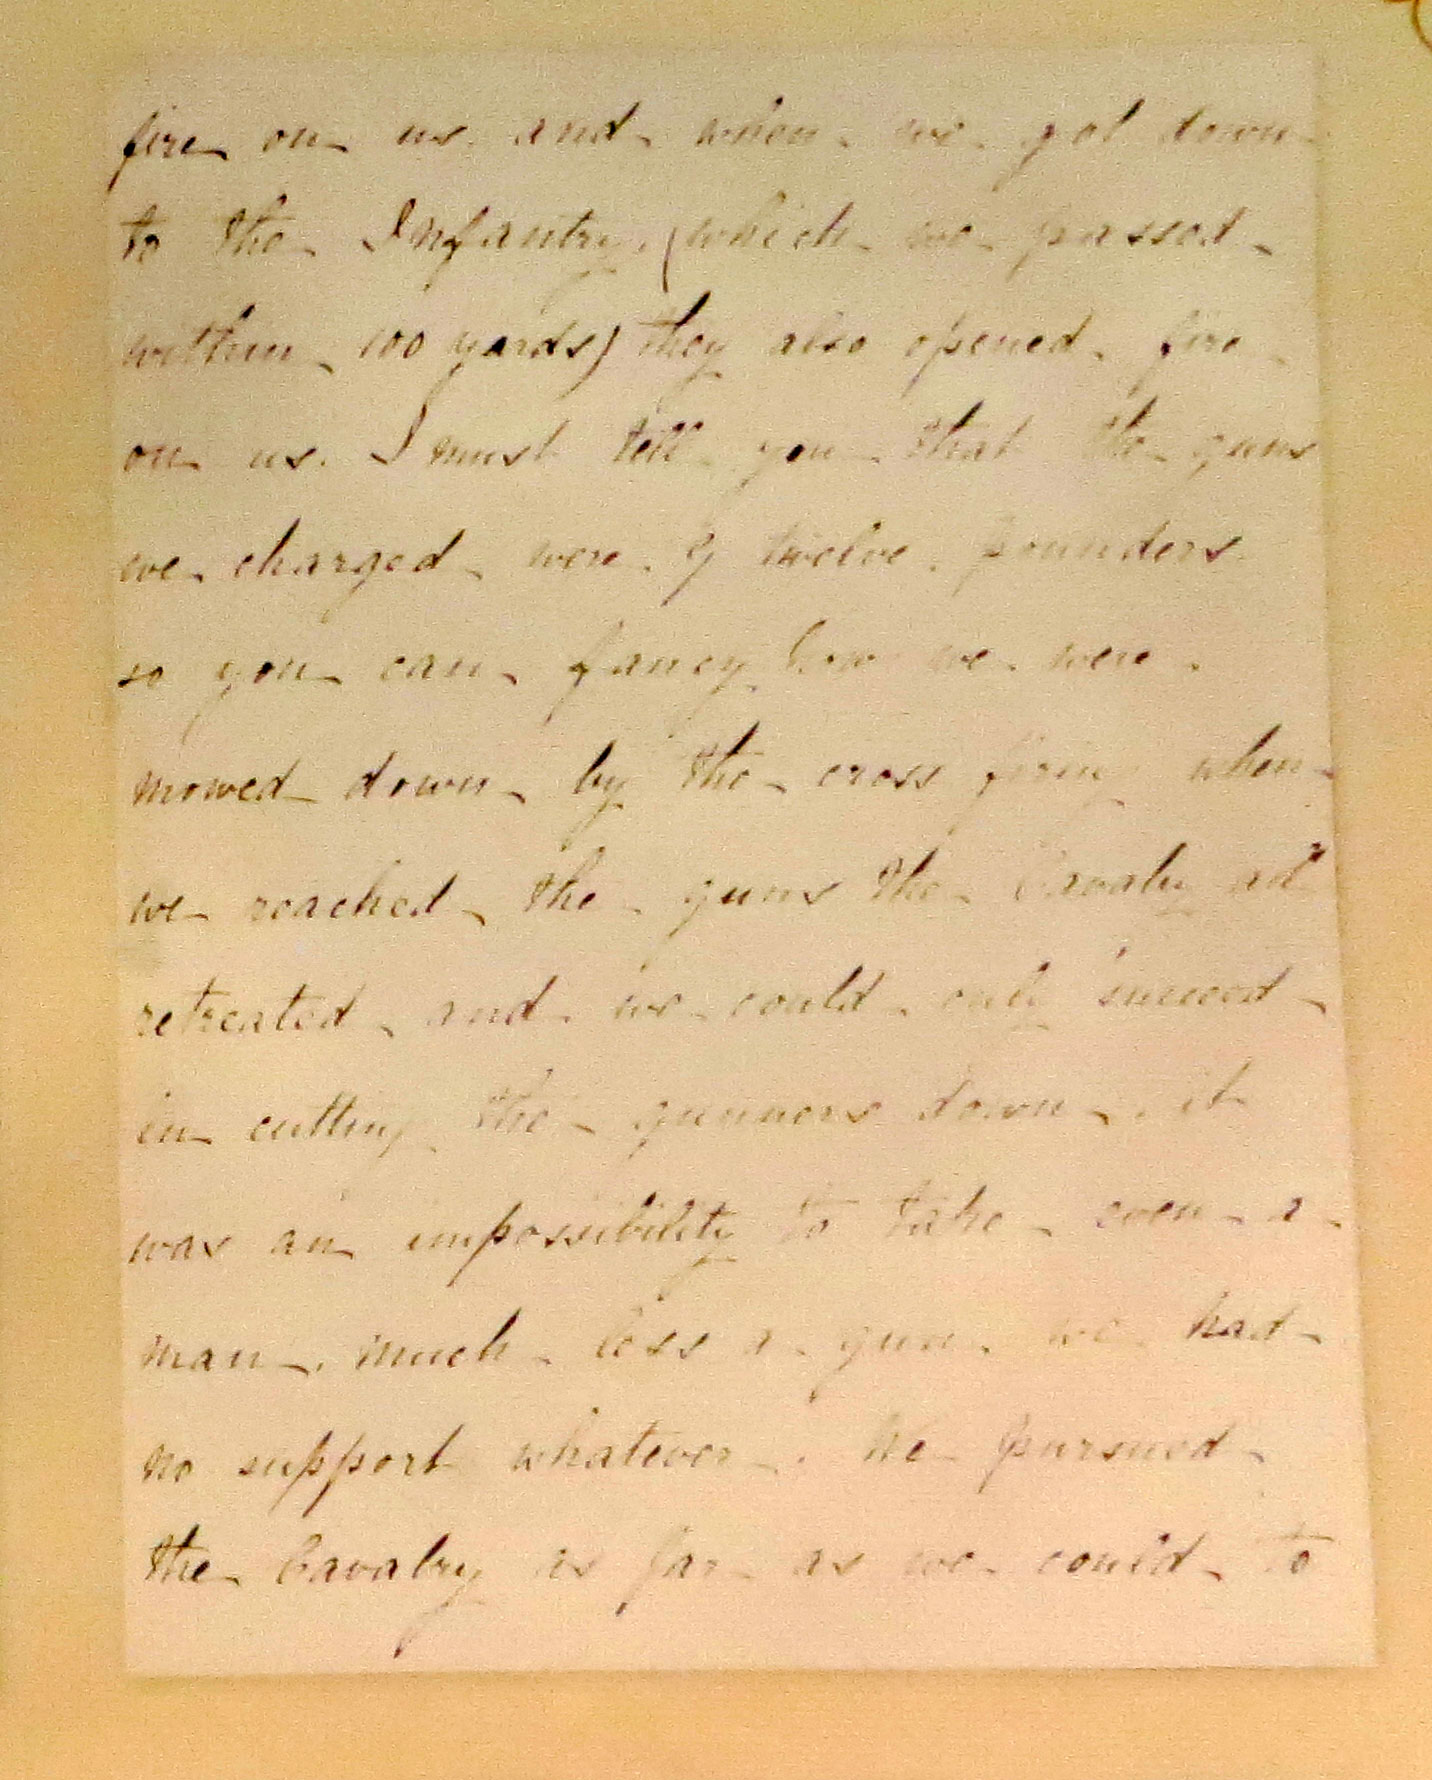 fire on us and when we got down
to the Infantry, (which we passed
within 100 yards) they also opened fire
on us. I must tell you that the guns
we charged were 9 twelve pounders
so you can fancy how we were
mowed down by the cross firing when
we reached the guns the Cavalry ad
retreated and we could only succeed
in cutting the gunners down, it
was an impossibility to take even a
man, much less a gun. we had
no support whatever. We pursued
the Cavalry as far as we could to